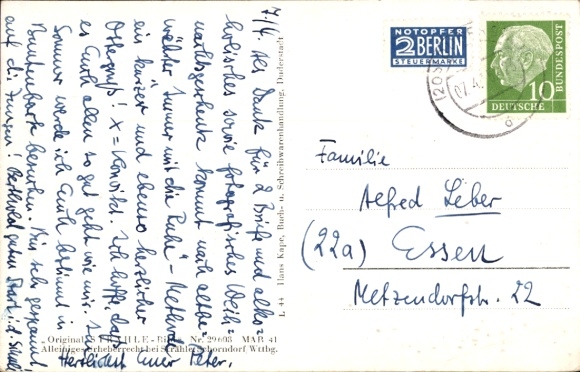 7./4. Der Dank für 2 Briefe und alko-
holisches sowie fotografisches Weih-
nachtsgeschenk kommt nach altbe-
währter "Immer mit die Ruhe" - Methode
ein kurzer und ebenso herzlicher
Ostergruß! X = Konvikt. Ich hoffe, daß
es Euch allen so gut geht wie mir. Im
Sommer werde ich Euch bestimmt in
besuchen. Bin sehr gespannt
auf die
Herzlichst Euer Peter.
L 44 Hans Kape, Buch- u. Schreibwarenhandlung, Duderstadt
„Original STRÄHLE-Bild“ Nr. 29698 MAR 41
Alleiniges Urheberrecht bei Strähle, Schorndorf Wttbg.
NOTOPFER
2 BERLIN
STEUERMARKE
(20
07.4.
a
DEUTSCHE
BUNDESPOST
10
Familie
Alfred Leber
(22a) Essen
Metzendorfstr. 22